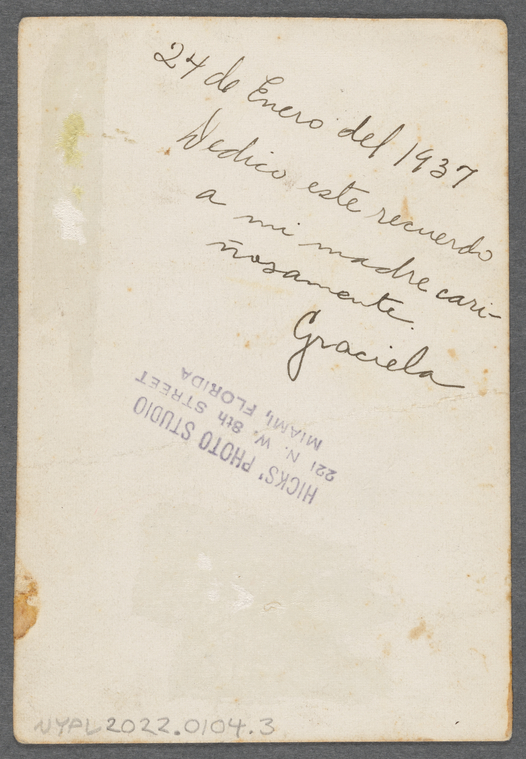 24 de Enero del 1937
Dedico este recuerdo
a mi madre cari-
ñosamente.
Graciela
HICKS' PHOTO STUDIO
221 N. W. 8th STREET
MIAMI, FLORIDA
NYPL2022.0104.3